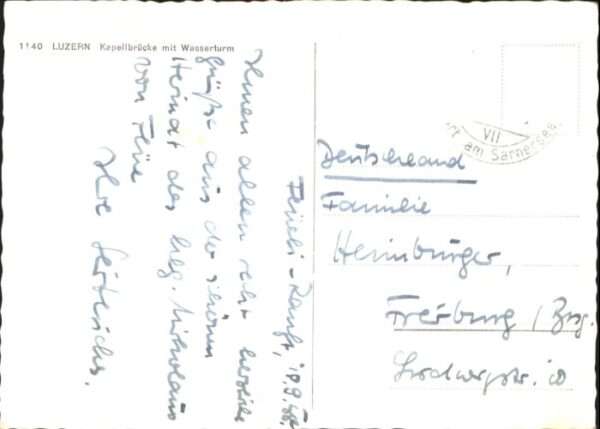 1140 LUZERN Kapellbrücke mit Wasserturm
Flüeli-Ranft, 18.9.
Ihnen allen recht herzliche
Grüße aus der schönen
Heimat des hlg. Nikolaus
von Flüe
Ihre
VII
am Sarnersee
Deutschland
Familie
Heimburger,
Freiburg / Brsg.
Ludwigstr.